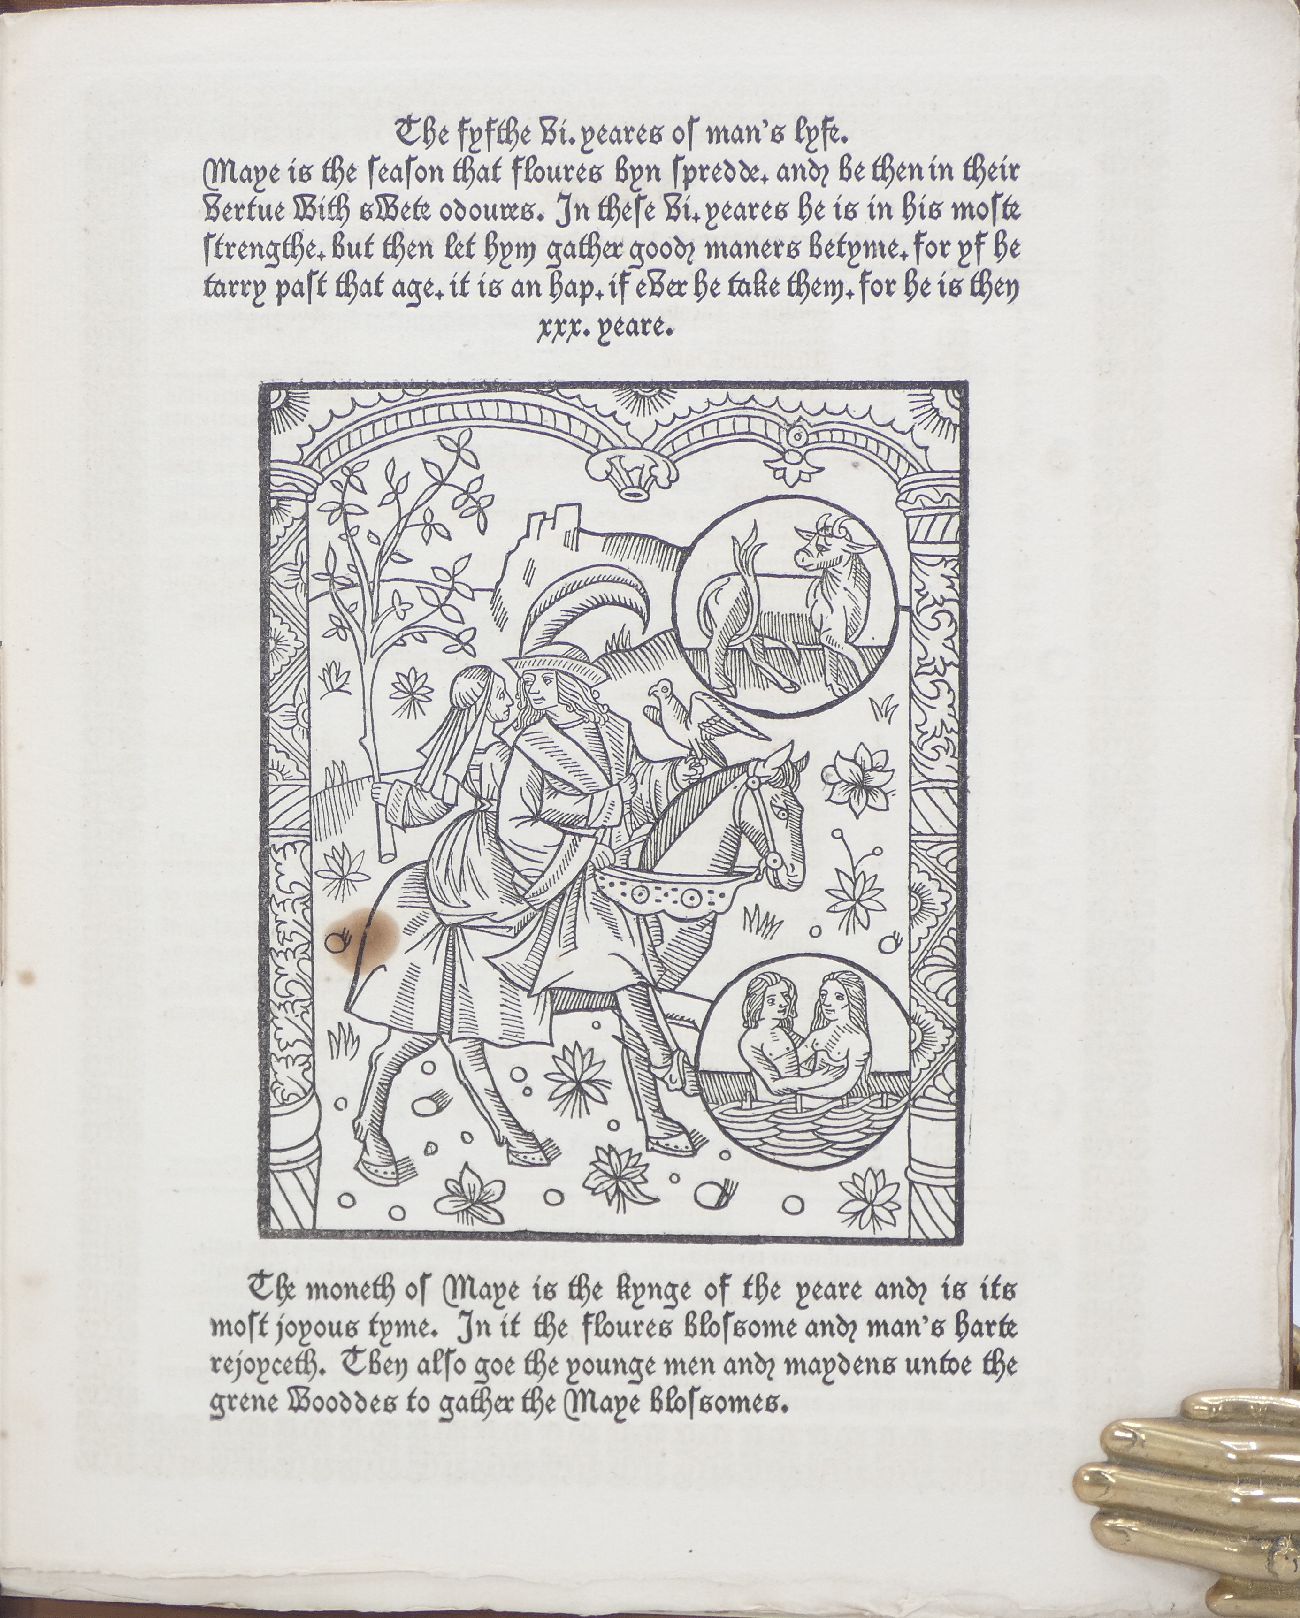 The fyfthe vi. yeares of man's lyfe.
Maye is the season that floures byn spredde. and be then in their
vertue with swete odoures. In these vi. yeares he is in his moste
strengthe. but then let hym gather good maners betyme. for yf he
tarry past that age. it is an hap. if ever he take them. for he is then
xxx. yeare.
The moneth of Maye is the kynge of the yeare and is its
most joyous tyme. In it the floures blossome and man's harte
rejoyceth. Then also goe the younge men and maydens untoe the
grene wooddes to gather the Maye blossomes.